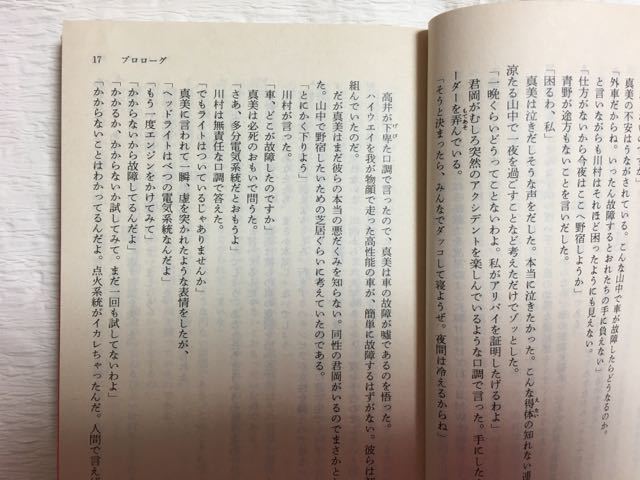 真美の不安はうながされている。こんな山中で車が故障したらどうなるのか。
「外車だからね。いったん故障するとおれたちの手に負えない」
と言いながらも川村はそれほど困ったようにも見えない。
「仕方がないから今夜はここへ野宿しようか」
青野が途方もないことを言いだした。
「困るわ、私」
真美は泣きだしそうな声をだした。本当に泣きたかった。こんな得体の知れない連
涼たる山中で一夜を過ごすことなど考えただけでゾッとした。
「一晩くらいどうってことないわよ。私がアリバイを証明したげるわよ」
君岡がむしろ突然のアクシデントを楽しんでいるような口調で言った。手にした
ーダーを弄んでいる。
「そうと決まったら、みんなでダッコして寝ようぜ。夜間は冷えるからね」
17 プロローグ
高井が下卑た口調で言ったので、真美は車の故障が嘘であるのを悟った。
ハイウエイを我が物顔で走った高性能の車が、簡単に故障するはずがない。彼らは
組んでいたのだ。
だが真美はまだ彼らの本当の悪だくみを知らない。同性の君岡がいるのでまさかと
た。山中で野宿したいための芝居ぐらいに考えていたのである。
「とにかく下りよう」
川村が言った。
「車、どこが故障したのですか」
真美は必死のおもいで問うた。
「さあ、多分電気系統だとおもうよ」
川村は無責任な口調で答えた。
「でもライトはついているじゃありませんか」
真美に言われて一瞬、虚を突かれたような表情をしたが、
「ヘッドライトはべつの電気系統なんだよ」
「もう一度エンジンをかけてみて」
「かからないから故障してるんだよ」
「かかるか、かからないか試してみて。まだ一回も試してないわよ」
「かからないことはわかってるんだよ。点火系統がイカレちゃったんだ。人間で言え